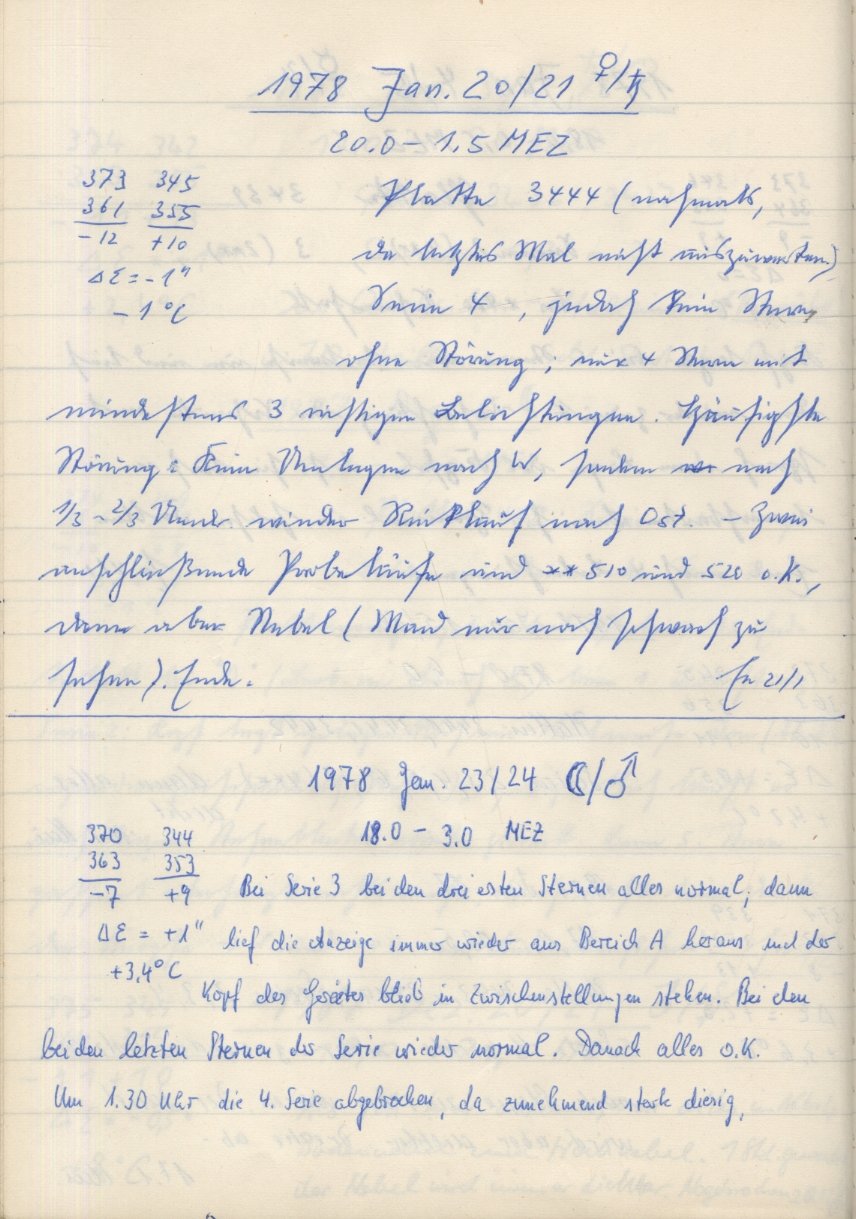 1978 Jan. 20/21 ♀/♄
20.0 - 1.5 MEZ
373 345
361 355
-12 +10
ΔE = -1"
-1°C
Platte 3444 (nochmals,
da letztes Mal nicht auszuwerten)
Serie 4, jedoch kein Stern
ohne Störung; nur 4 Sterne mit
mindestens 3 richtigen Belichtungen. Häufigste
Störung: Kein Umlegen nach W, sondern nach
1/3 - 2/3 wieder Rücklauf nach Ost. - Zwei
anschließende Probeläufe und ** 510 und 520 o.K.,
dann aber Nebel (Mond nur noch schwach zu
sehen). Ende. 21/1
1978 Jan. 23/24 ☾/♂
18.0 - 3.0 MEZ
370 344
363 353
-7 +9
ΔE = +1"
+3,4°C
Bei Serie 3 bei den drei ersten Sternen alles normal, dann
lief die Anzeige immer wieder aus Bereich A heraus und der
Kopf des Gerätes blieb in Zwischenstellungen stehen. Bei den
beiden letzten Sternen der Serie wieder normal. Danach alles o.K.
Um 1.30 Uhr die 4. Serie abgebrochen, da zunehmend stark diesig,